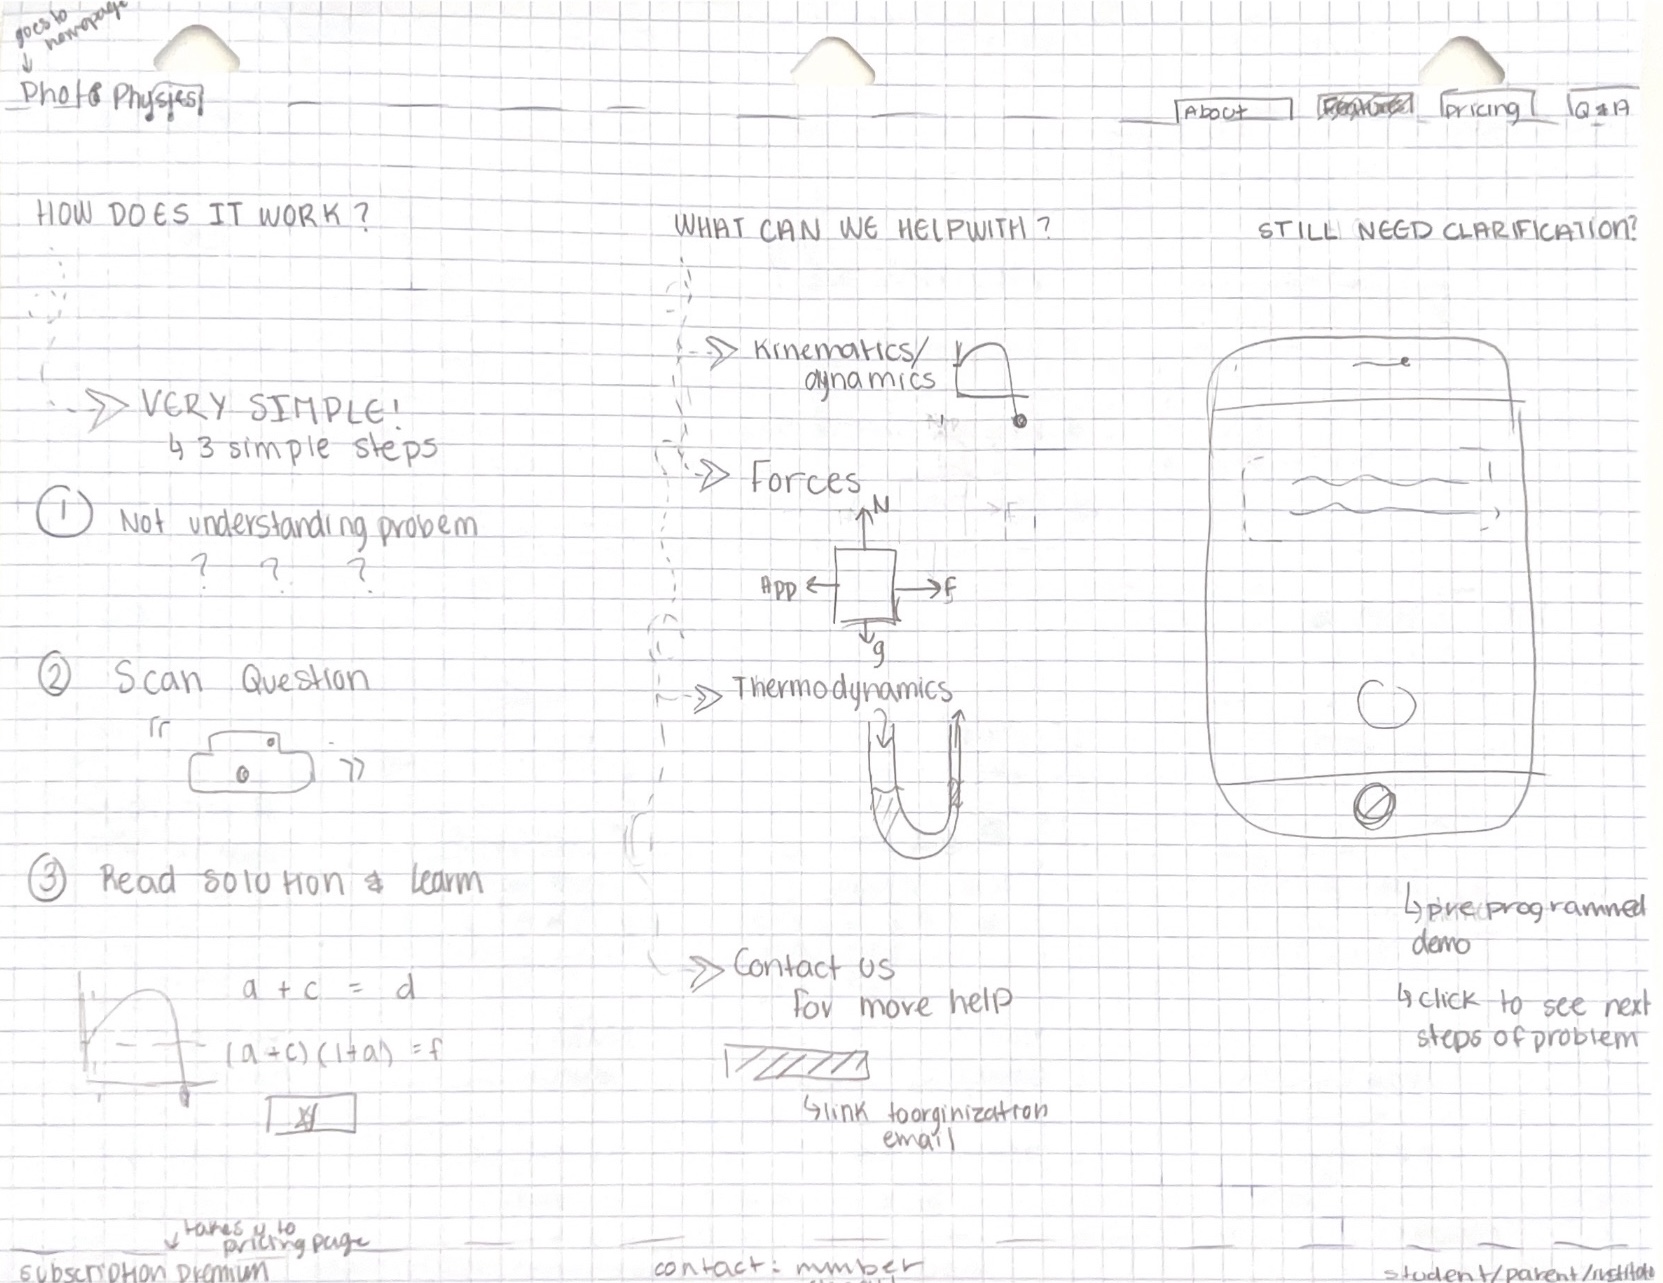 goes to
homepage
Photo Physics
About
Features
pricing
Q & A
HOW DOES IT WORK?
VERY SIMPLE!
↳ 3 simple steps
① Not understanding probem
? ? ?
② Scan Question
③ Read solution & learn
a + c = d
(a + c)(1+a) = f
WHAT CAN WE HELPWITH?
Kinematics/
dynamics
Forces
N
App
f
g
Thermodynamics
Contact us
for more help
↳ link toorginization
email
STILL NEED CLARIFICATION?
↳ preprogrammed
demo
↳ click to see next
steps of problem
takes u to
pricing page
subscription premium
contact: number
student/parent/institute